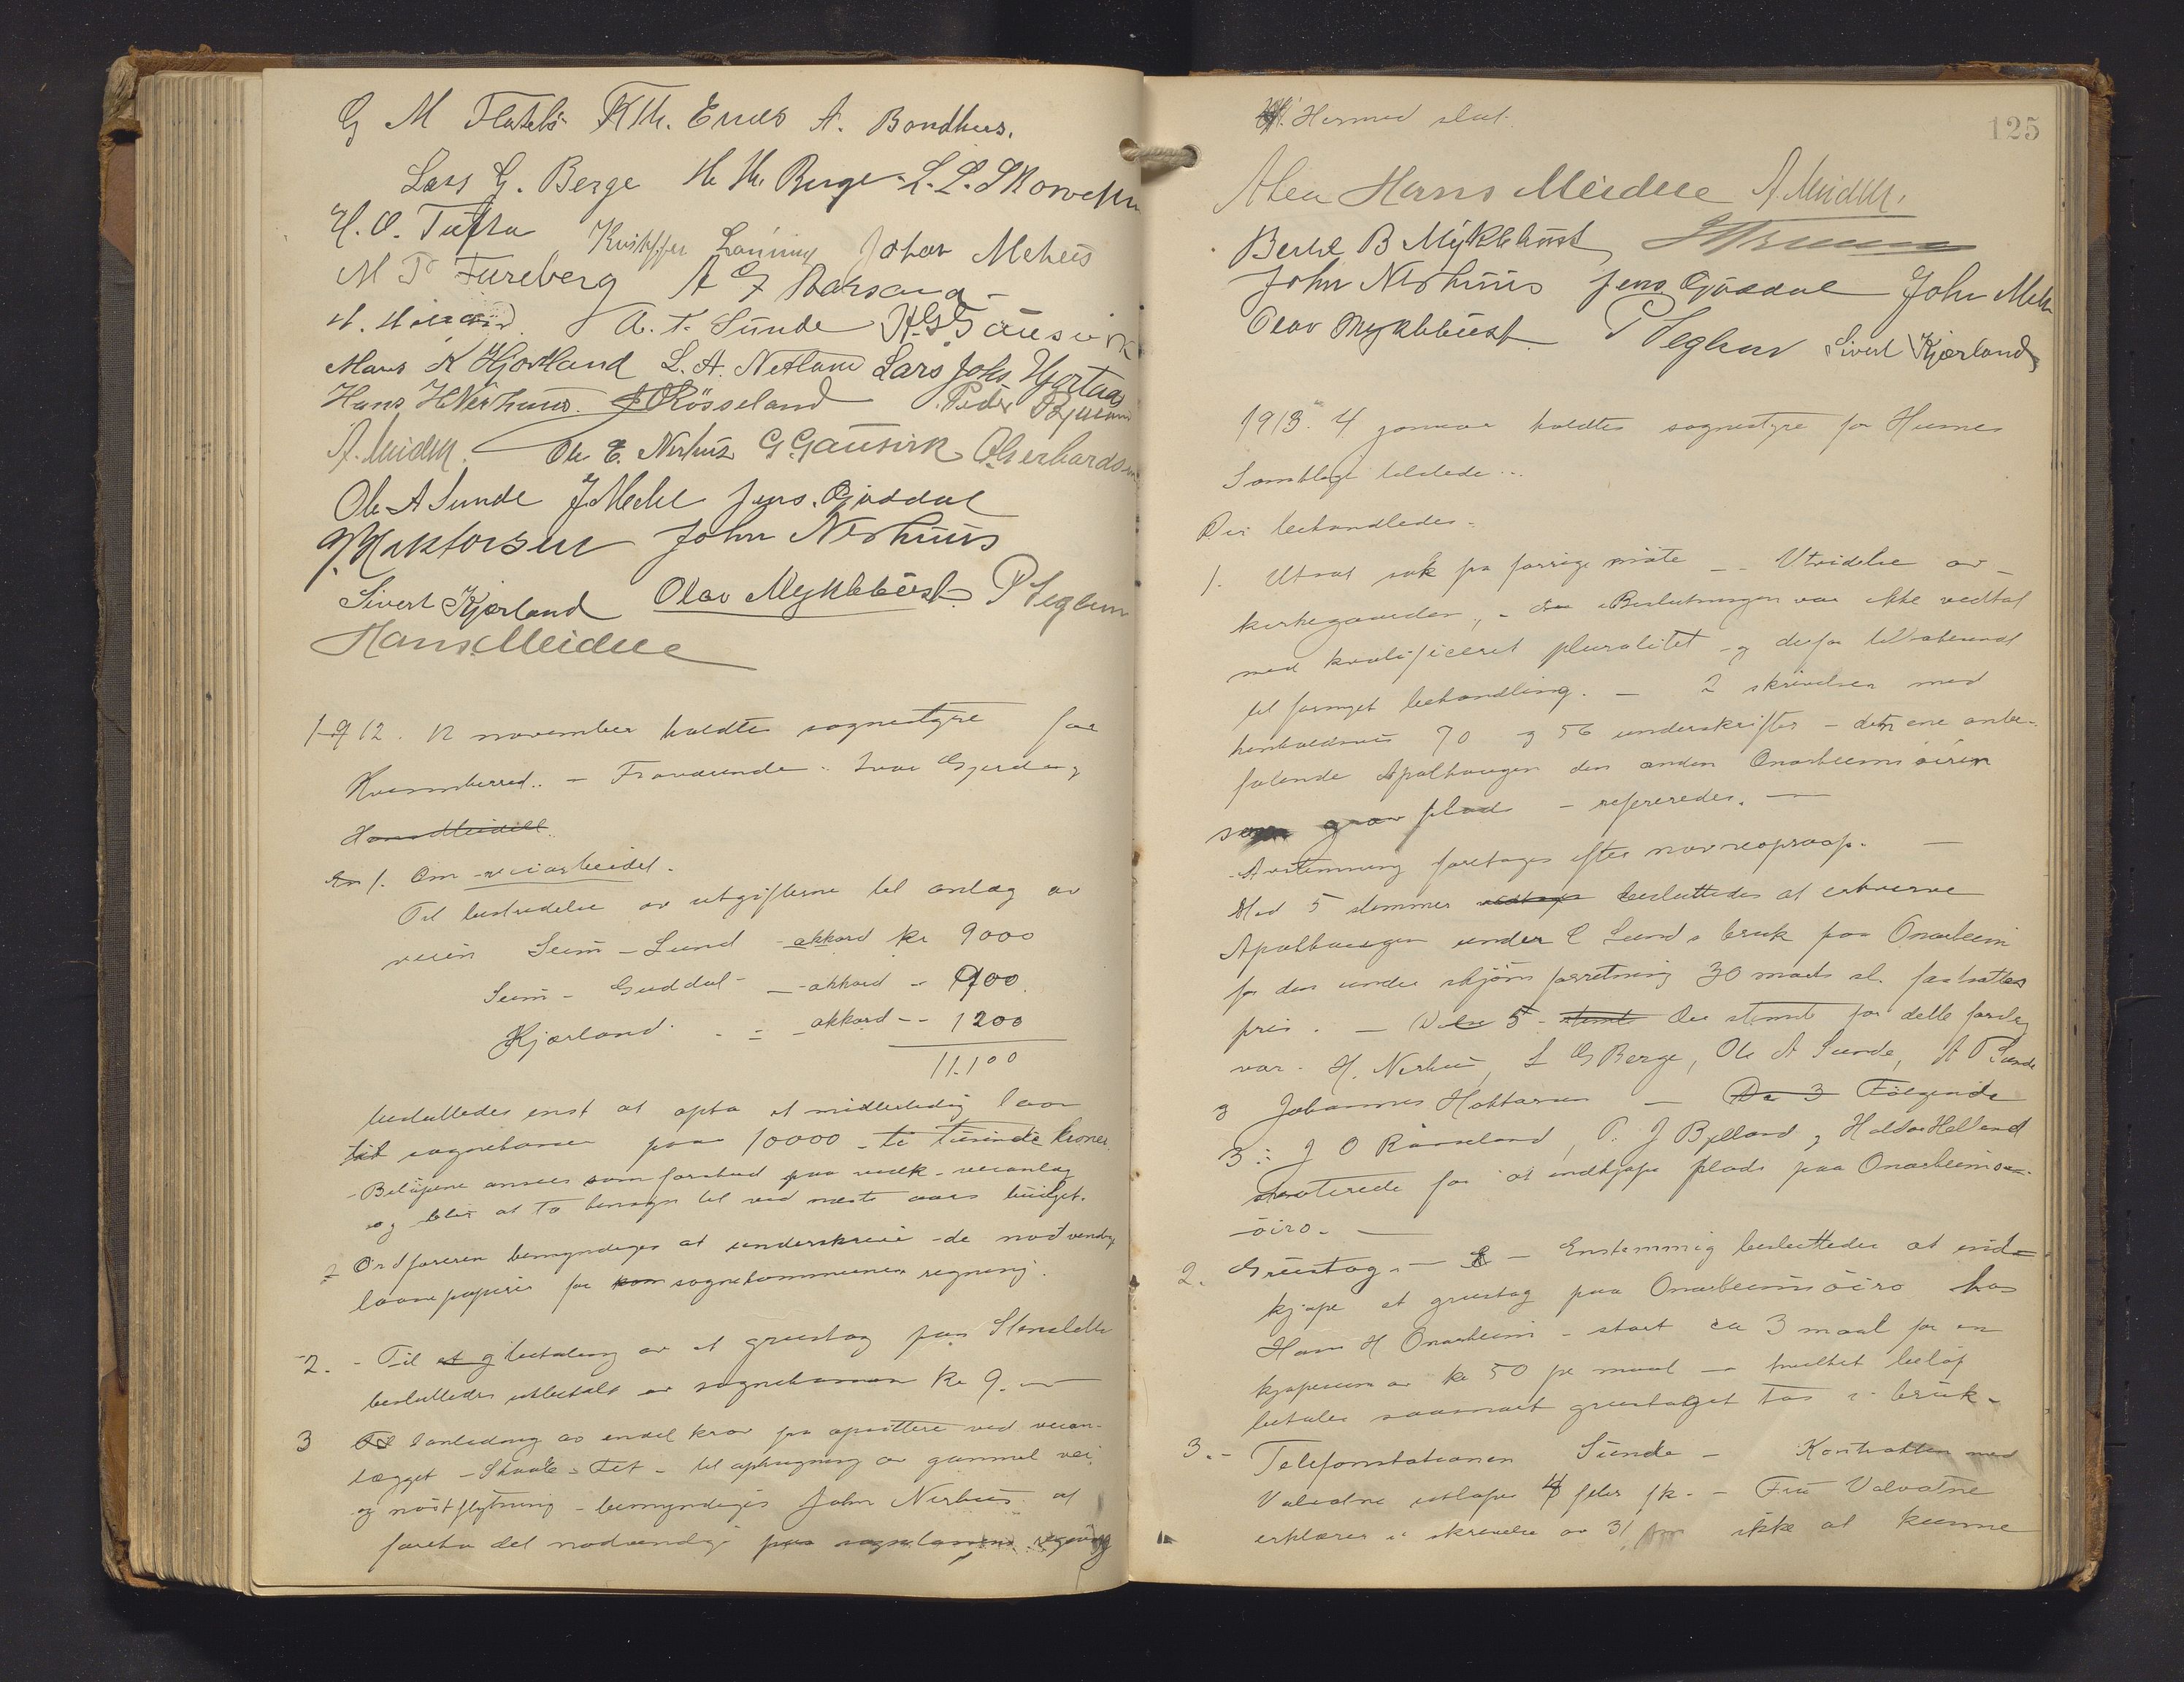 G M Flatebö K Th. Enes A. Bondhus.
Lars G. Berge H. Th. Berge L. L. Skorveku
H. O. Tufta Kristoffer Lönning Johan Mehus
M T Fureberg A G Baarsand
H. A. T. Sunde H G Gausvik
Mons K Hjortland L. A. Netland Lars Johs. Hjertaas
Hans H Nerhuus. J O Rösseland Peder
A. Meidell. Ole E. Nerhus G Gausvik O Gerhards
Ole A Sunde J Mehl Jens. Guddal
Haktorsen John Nerhuus
Sivert Kjærland Olav Myklebust P Seglem
Hans Meidell
1912. 12 november holdtes sognestyre for
Kvamherred.. - Fraværende: Ivar Gjerde og
Hans Meidell.
1. Om veiarbeidet.
Til bestridelse av utgifterne til anlæg av
veien Seim - Lund - akkord kr 9000
Seim - Guddal - akkord - 900.
Kjærland - akkord - - 1200
11.100
besluttedes enst at opta et midlertidig laan
til sognekassen paa 10000 - ti tusinde kroner.
- Belöpene ansees som forskud paa vedk. veianlæg
og blir at ta hensyn til ved næste aars budget.
Ordföreren bemyndiges at underskrive de nödvendig
laanepapirer for sognekommunens regning.
2. - Til betaling av et grustag paa
besluttedes utbetalt av sognekassen kr 9. —
3 I anledning av endel krav fra opsittere ved veian-
lægget - - til oprygning av gammel vei
og nöstflytning - bemyndiges John Nerhus at
foreta det nödvendige paa sognekassens regning
125
Hermed slut.
Hans Meidell A. Meidell.
Bertel B Myklebust
John Nerhuus Jens Guddal John Mehl
Olav Myklebust P Seglem Sivert Kjærland
1913. 4 januar holdtes sognestyre for Husnes
Samtlige tilstede...
Der behandledes:
1. Utsat sak fra forrige möte - - Utvidelse av
kirkegaarden, - Beslutningen var ikke vedtat
med kvalificeret pluralitet og derfor tilbakesendt
til fornyet behandling. - 2 skrivelser med
henholdsvis 70 og 56 underskrifter - den ene anbe-
falende Apalhaugen den anden Onarheimsöiren
som grav plads - refereredes. —
Avstemning foretages efter navneoprop. —
Med 5 stemmer vedtages besluttedes at erhverve
Apalhaugen under L Lunds bruk paa Onarheim
for den under skjöns forretning 30 marts sl. fastsattes
pris. - De 5 stemte Der stemte for dette forslag
var. H. Nerhus, L G Berge, Ole A Sunde, A T Sunde
og Johannes Haktorsen - De 3 Fölgende
3: J O Rösseland, P. J Bjelland, og Haldor Helland
voterede for at indkjöpe plads paa Onarheims-
öiro. —
2. Grustag. - - Enstemmig besluttedes at ind-
kjöpe et grustag paa Onarheimsöiro hos
Hans H Onarheim - stort ca 3 maal for en
kjöpesum av kr 50 pr maal - hvilket belöp
betales saasnart grustaget tas i bruk.
3. - Telefonstationen Sunde - Kontrakten med
Valvatne utlöper 4 febr fk. - Fru Valvatne
erklærer i skrivelse av 31 ikke at kunne